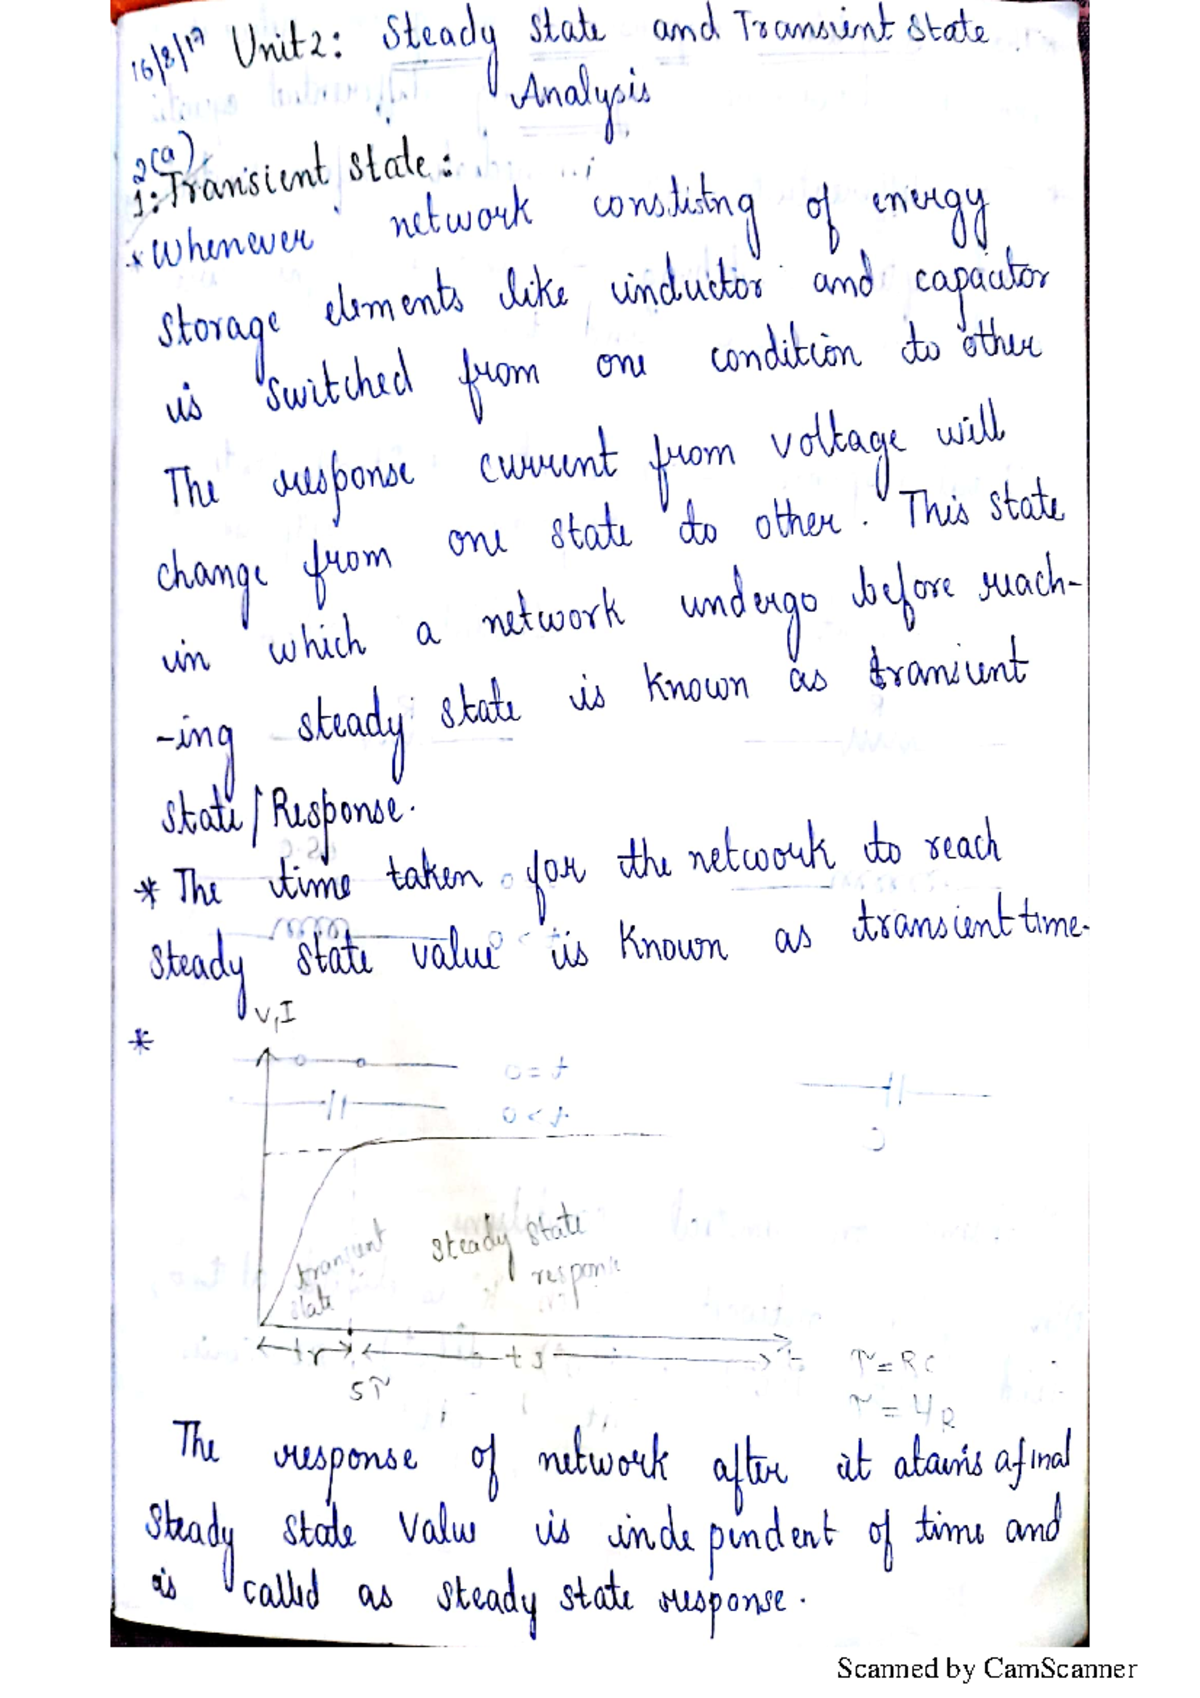 16/8/17 Unit 2: Steady State and Transient State
Analysis
2(a)
1: Transient State:
* Whenever network constisting of energy
storage elements like inductor and capacitor
is switched from one condition to other
The response current from voltage will
change from one state to other. This state
in which a network undergo before reach-
-ing steady state is known as transient
state/Response.
* The time taken for the network to reach
steady state value is known as transient time.
V,I
*
transient
state
steady state
response
tr
ts
t
5τ
τ=RC
τ=L/R
The response of network after it atains a final
steady state value is independent of time and
is called as steady state response.
Scanned by CamScanner